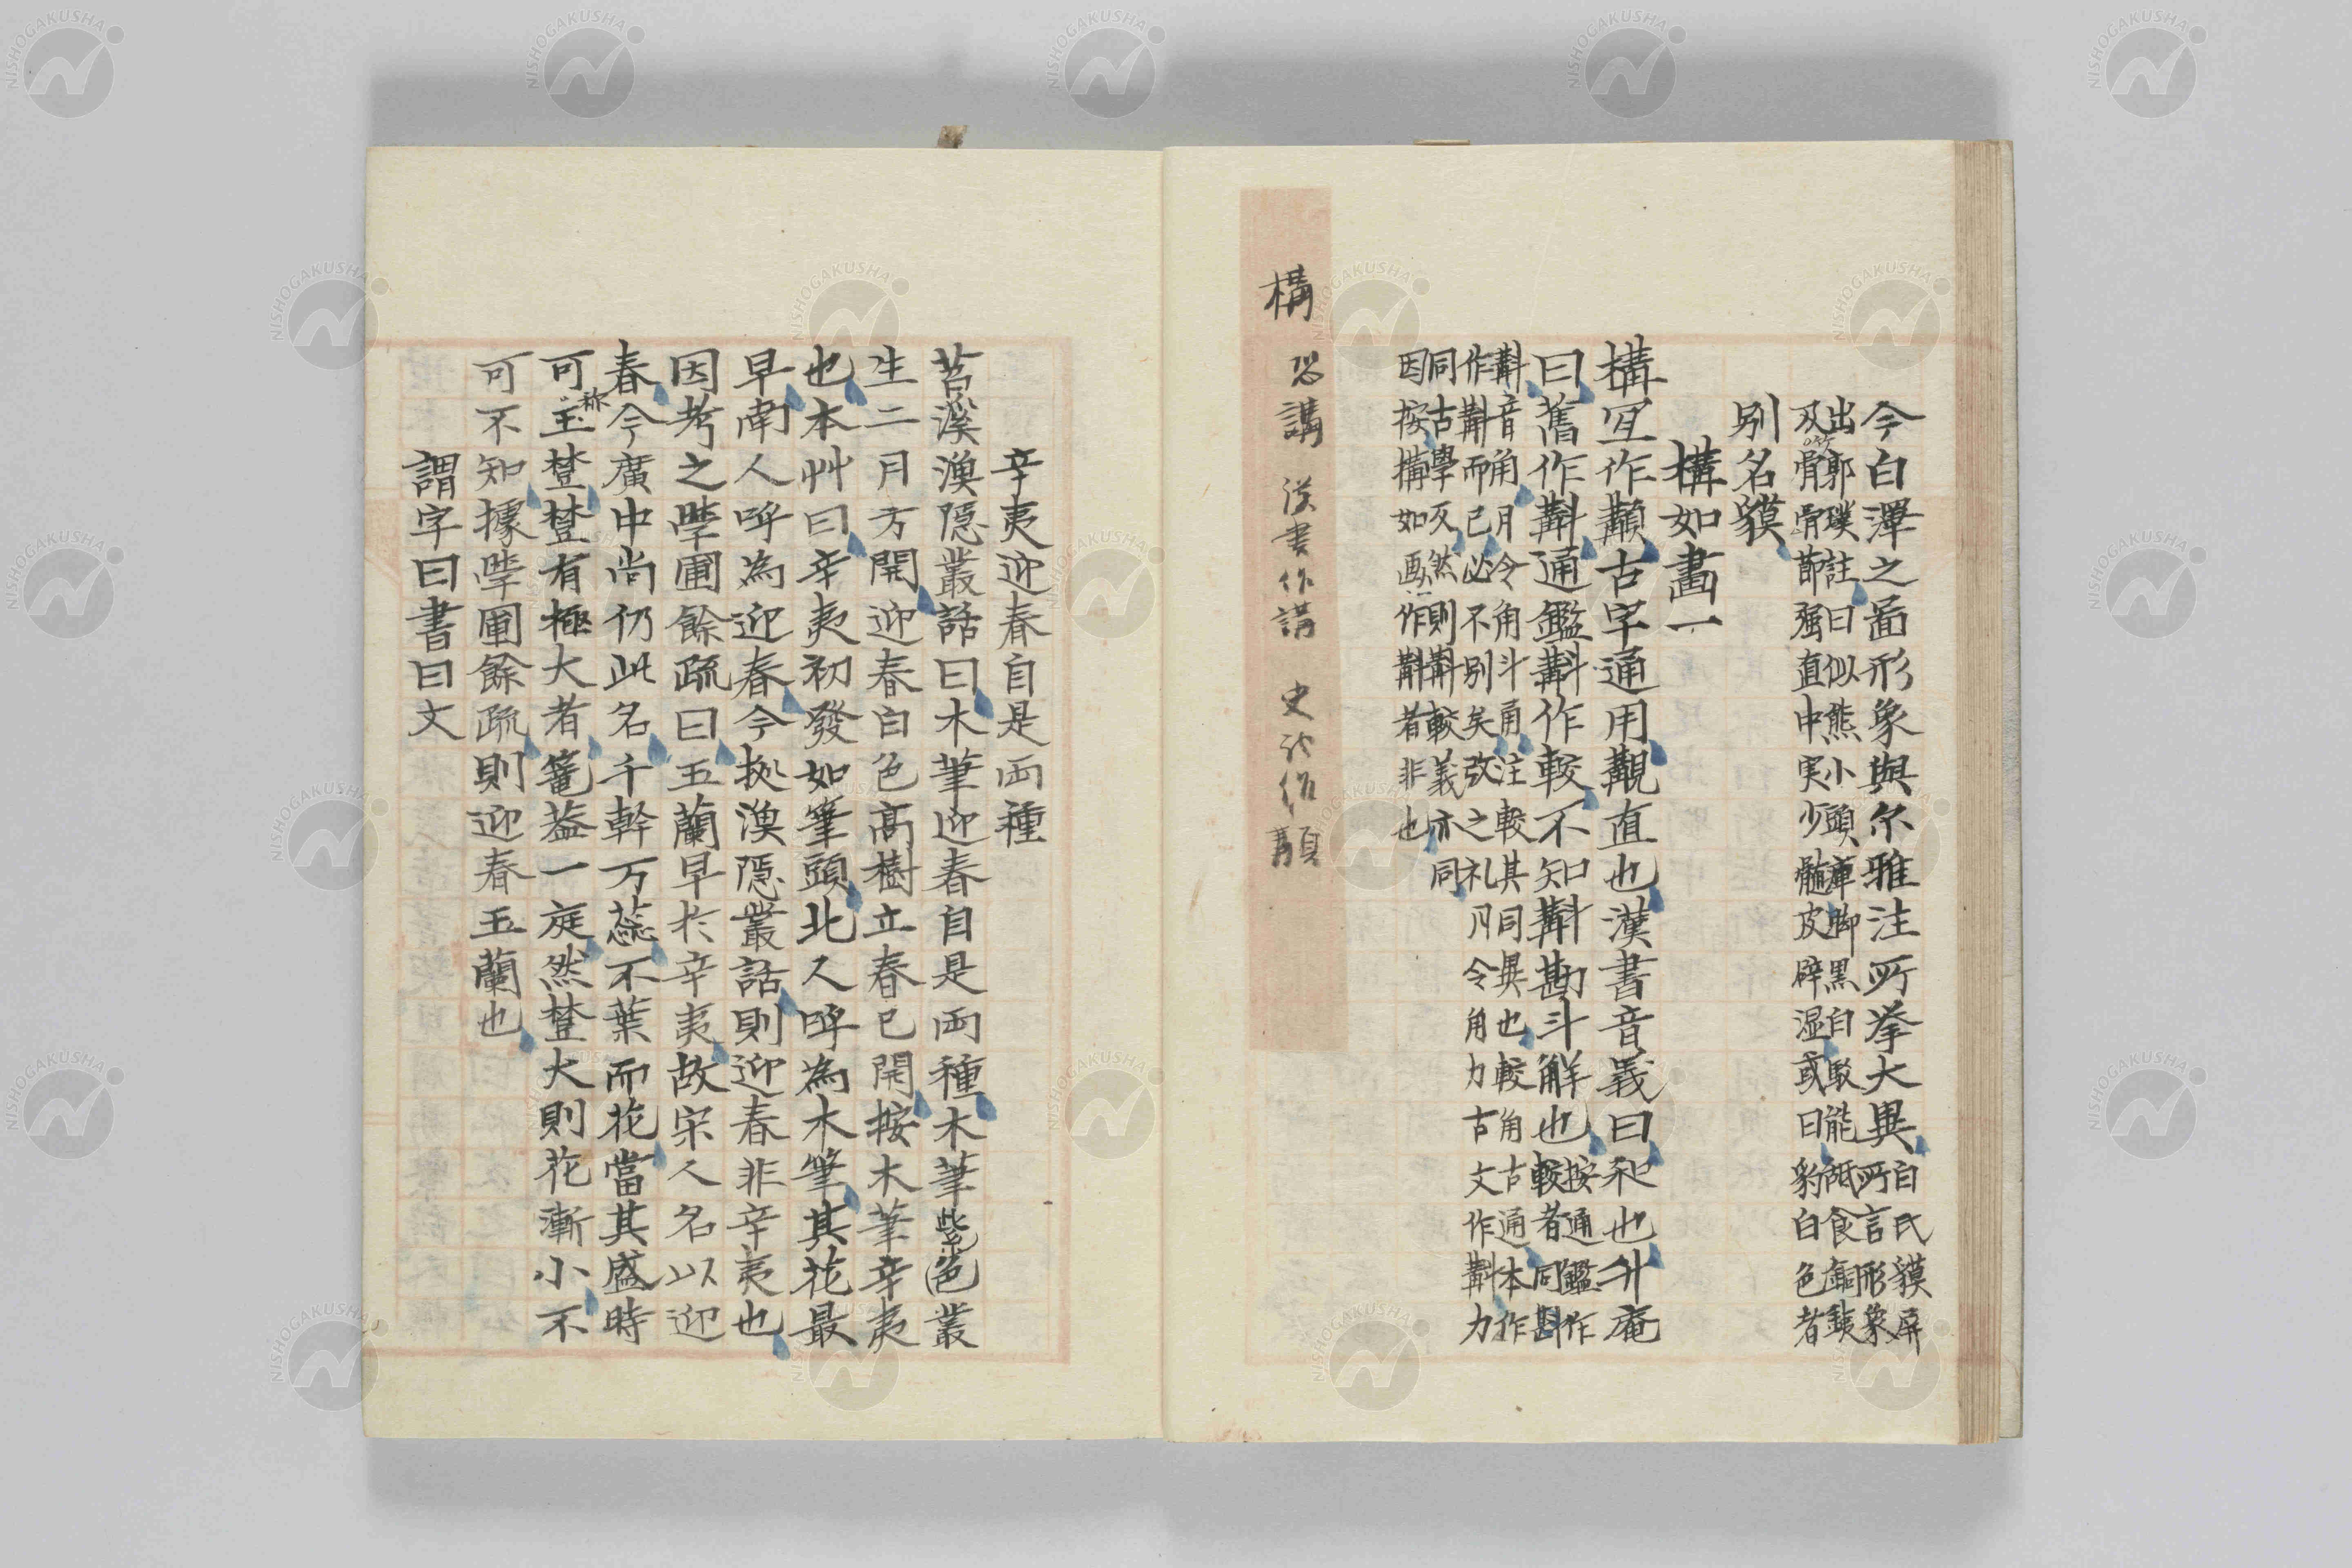 今白澤之啚形象與尒雅注所挙大異白氏貘屏
所言形象
出郭璞註曰似熊小頭庳脚黒白駁能䑛食銅鉄
及骨骨節强直中実少髓皮辟湿或曰豹白色者
别名貘
構如畫一
構㕛作顜古字通用觀直也漢書音義曰和也升庵
曰舊作斠通鑑斠作較不知斠斟斗解也按通鑑作
較者同斟
斠音角月令角斗甬注較其同異也較角古通本作
作斠而已必不别矣改之礼月令角力古文作斠力
同古學仄然則斠較義亦同
因按構如画一作斠者非也
構 恐講 漢書作講 史記作顜
辛夷迎春自是両種
苕溪漁隠叢話曰木筆迎春自是両種木筆紫色叢
生二月方開迎春白色高樹立春已開按木筆辛夷
也本艸曰辛夷初發如筆頭北人呼為木筆其花最
早南人呼為迎春今拠漁隠叢話則迎春非辛夷也
因考之學圃餘疏曰玉蘭早於辛夷故宋人名以迎
春今廣中尚仍此名千幹万蕊不葉而花當其盛時
可称玉
樹有極大者籠蓋一庭然樹大則花漸小不
可不知據學圃餘疏則迎春玉蘭也
謂字曰書曰文
NISHOGAKUSHA